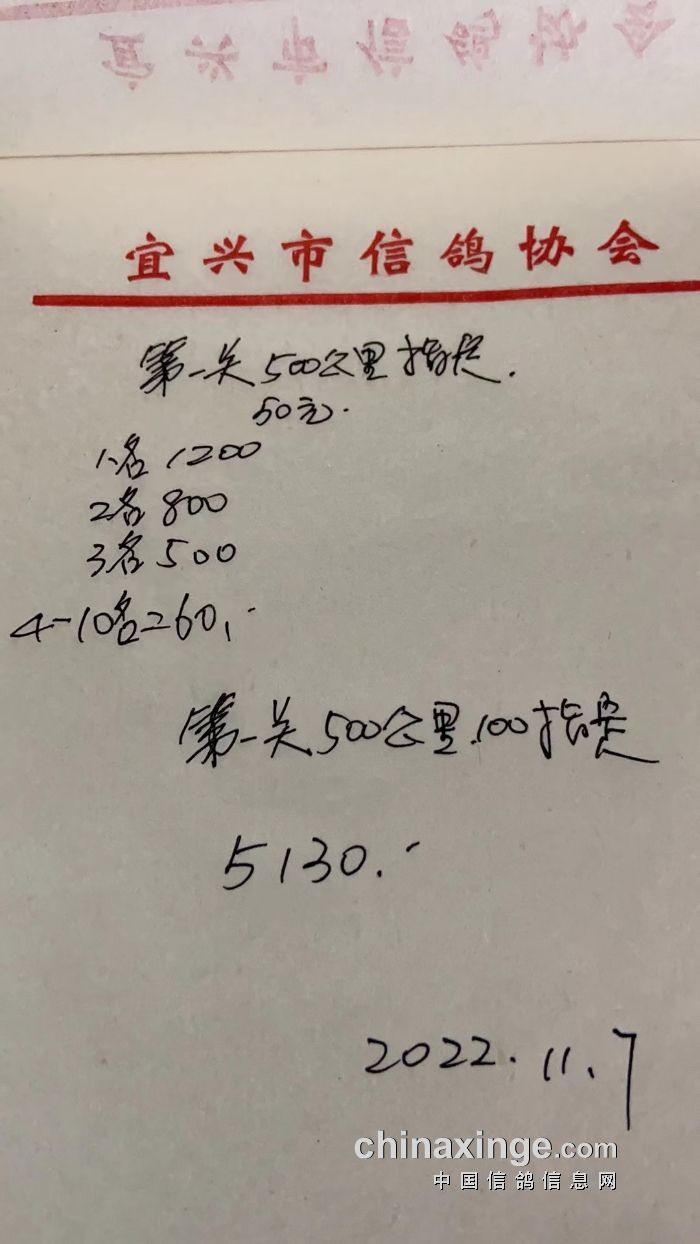 宜兴市信鸽协会
宜兴市信鸽协会
第一关500公里指定.
50元.
1名 1200
2名 800
3名 500
4-10名260.
第一关500公里.100指定
5130.
2022.11.7
chinaxinge.com
中国信鸽信息网